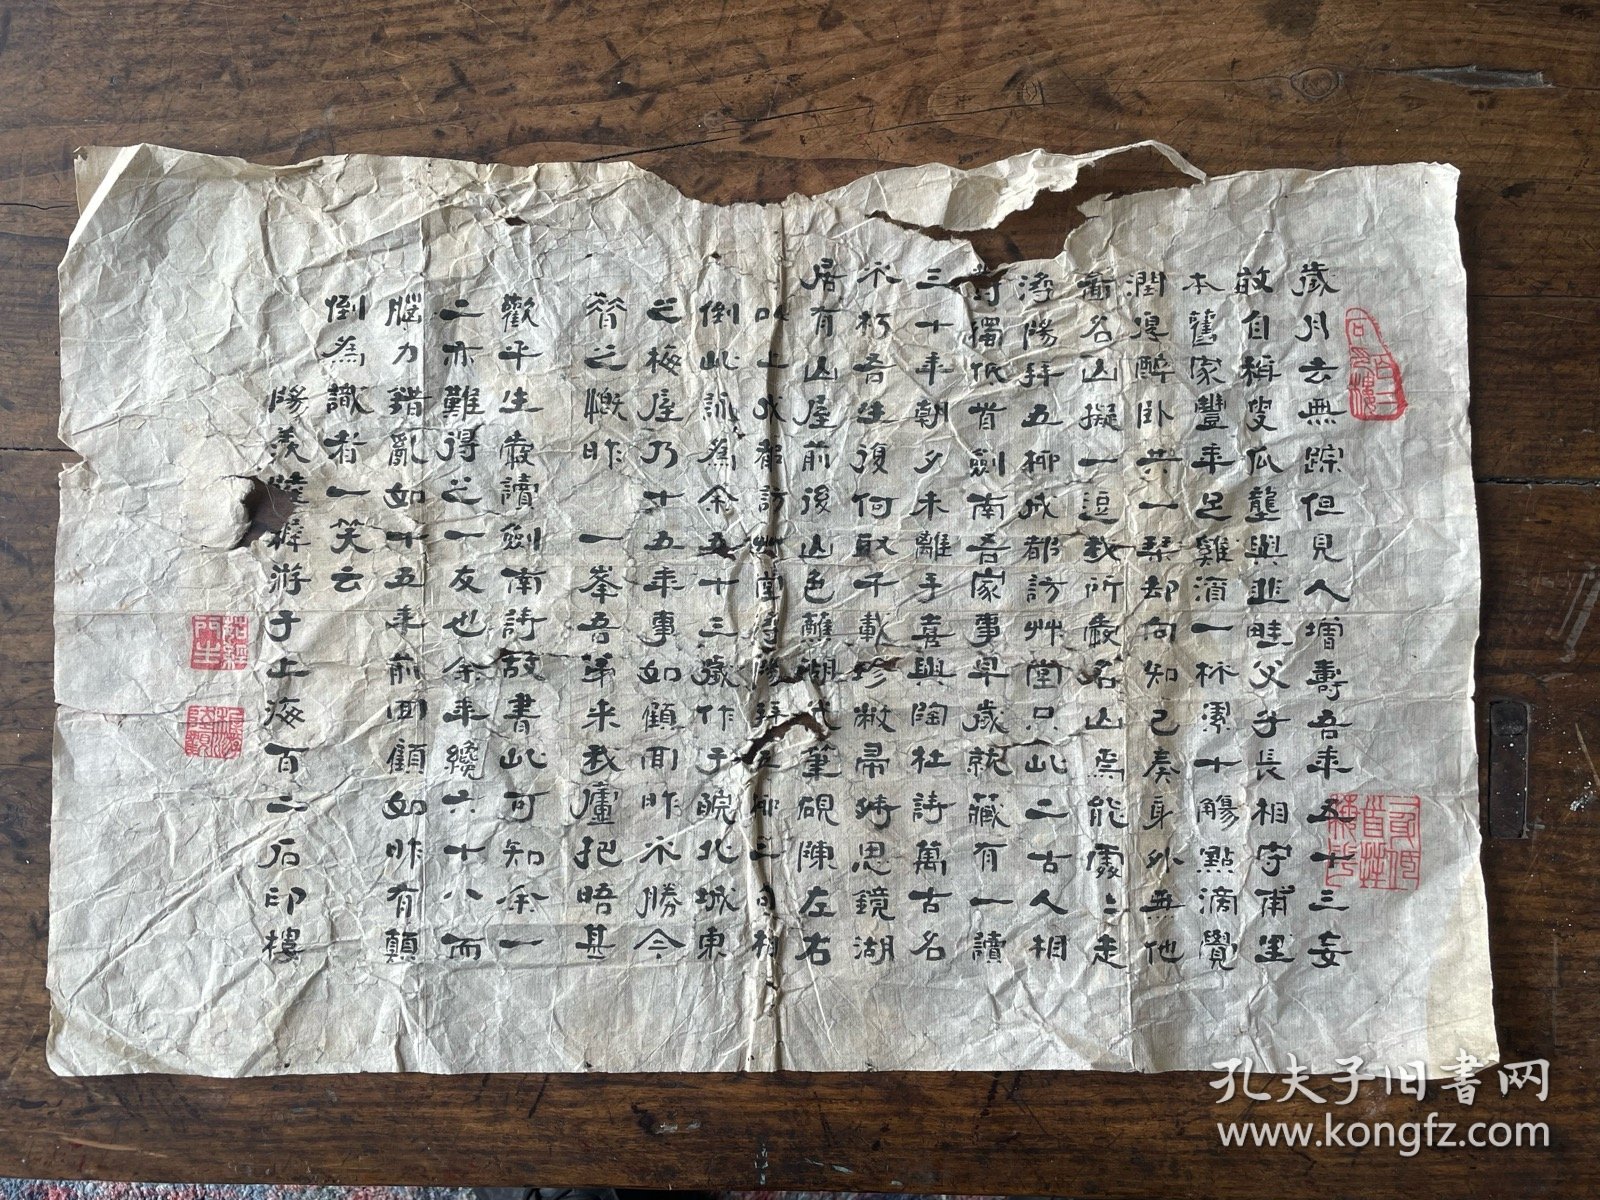 歲月去無踪但見人增壽吾年五十三妄
敢自稱叟瓜壟與韭畦父子長相守甫里
本舊家豐年足雞酒一杯累十觴點滴覺
潤厚醉卧共一琴却向知己奏身外無他
蓄名山擬一逗我所歲名山焉能處處走
潯陽拜五柳成都訪艸堂只此二古人相
詩獨低首劍南吾家事早歲就藏有一讀
三十年朝夕未離手喜與陶杜詩萬古名
不朽吾生復何取千載珍敝帚時思鏡湖
居有山屋前後山色蘸湖代筆硯陳左右
以上成都訪艸堂潯陽拜五柳二句相
倒此詠為余五十三歲作于皖北城東
之梅庵乃十五年事如顧間昨不勝今
昔之慨昨 一峯吾弟來我廬把晤甚
歡平生愛讀劍南詩故書此可知余一
二亦難得之一友也余年纔六十八而
腦力錯亂如十五年前回顧如昨有顛
倒為識者一笑云
陽羨陸 游于上海百二石印樓
孔夫子旧書网
www.kongfz.com